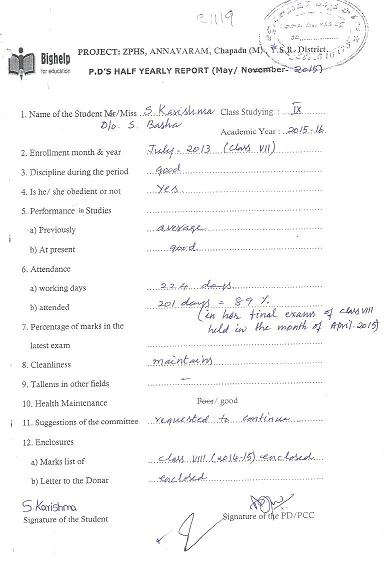 21119
Bighelp
for education
PROJECT: ZPHS, ANNAVARAM, Chapadu (M), Y.S.R. District.
P.D'S HALF YEARLY REPORT (May/ November- 2015)
1. Name of the Student Mr/Miss S. Karishma Class Studying : IX
D/o. S. Basha
Academic Year : 2015-16
2. Enrollment month & year July - 2013 (Class VII)
3. Discipline during the period good
4. Is he/ she obedient or not Yes
5. Performance in Studies
a) Previously average
b) At present good
6. Attendance
a) working days 224 days
b) attended 201 days = 89 %
(in her final exams of class VIII
7. Percentage of marks in the held in the month of April-2015)
latest exam
8. Cleanliness maintains
9. Tallents in other fields –
10. Health Maintenance Poor/ good
11. Suggestions of the committee requested to continue
12. Enclosures
a) Marks list of class VIII (2014-15) enclosed
b) Letter to the Donar enclosed
S. Karishma
Signature of the Student
Signature of the PD/PCC